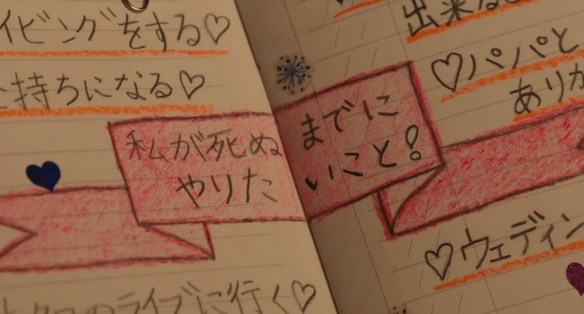 イビングをする♡
持ちになる♡
私が死ぬまでに
やりたいこと!
のライブに行く♡
出来
♡パパと
ありが
♡ウェディン